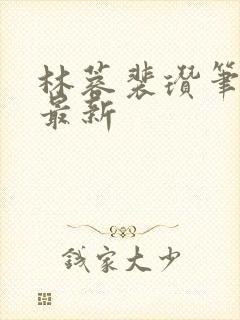 林蓉裴瓒笔
最新
钱家大少